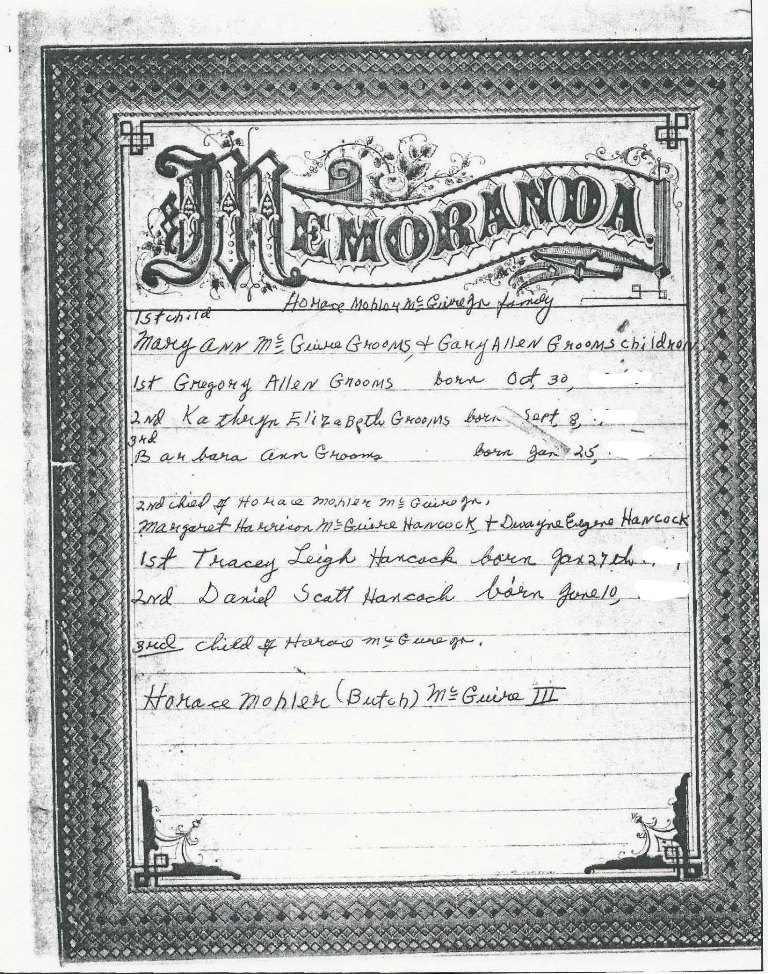 MEMORANDA.
Horace Mohler McGuire Jr family
1st child
Mary Ann McGuire Grooms, + Gary Allen Grooms children
1st Gregory Allen Grooms born Oct 30,
2nd Kathryn Elizabeth Grooms born Sept 8,
3rd
Barbara Ann Grooms born Jan 25,
2nd chied of Horace Mohler McGuire Jr.
Margaret Harrison McGuire Hancock, + Dwayne Eugene Hancock
1st Tracey Leigh Hancock born Jan 27th
2nd Daniel Scott Hancock born June 10,
3rd child of Horace McGuire Jr.
Horace Mohler (Butch) McGuire III